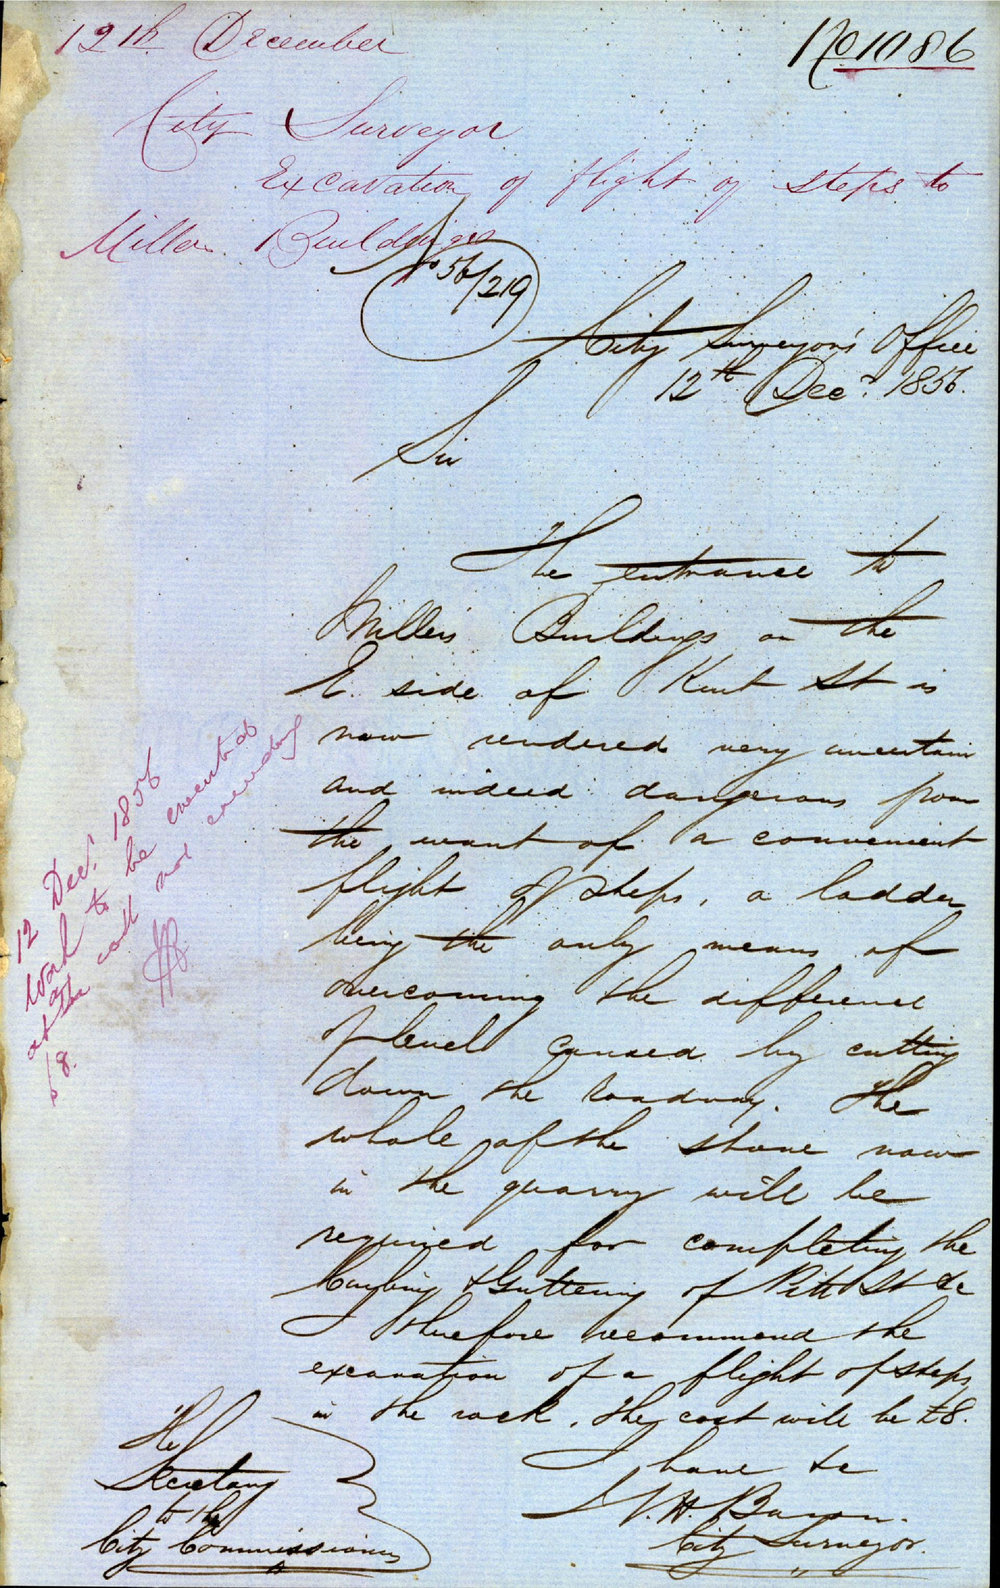 12th December
No 1086
City Surveyor
Excavation of flight of steps to
Millers Buildings
No 56/219
City Surveyor's Office
12th Decr. 1856.
Sir
The entrance to
Millers Buildings on the
E. side of Kent St is
now rendered very uncertain
and indeed dangerous from
the want of a convenient
flight of steps, a ladder
being the only means of
overcoming the difference
of level caused by cutting
down the roadway. The
whole of the stone now
in the quarry will be
required for completing the
Curbing & Guttering of Pitt St &c
I therefore recommend the
excavation of a flight of steps
in the rock, the cost will be £8.
I have &c
City Surveyor.
The
Secretary
to the
City Commissioners
12 Decr. 1856
Work to be executed
at the cost not exceeding
£8.